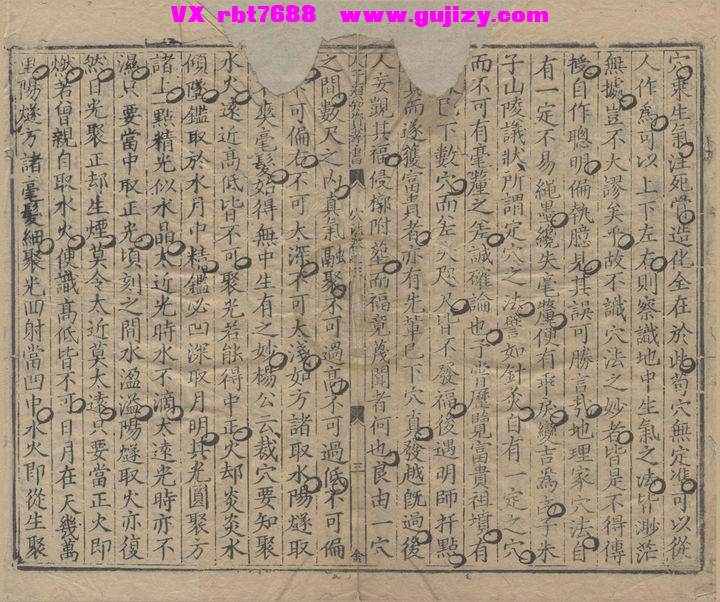 VX rbt7688 www.gujizy.com
穴乘生氣注死骨造化全在於此苟穴無定準可以從
人作為可以上下左右則察識地中生氣之法皆渺茫
無據豈不大謬矣乎故不識穴法之妙者皆是不得傳
授自作聰明偏執臆見其誤可勝言哉地理家穴法自
有一定不易繩墨纔失毫釐便有乖戾變吉為凶子朱
子山陵議狀所謂定穴之法譬如針灸自有一定之穴
而不可有毫釐之差誠確論也予嘗歷覽富貴祖墳有
已下數穴而差咫尺皆不發福後遇明師扦點
其而遂獲富貴者亦有先輩已下穴真發越既過後
人妄覬其福侵擲附葬而福竟蔑聞者何也良由一穴
之間數尺之內真氣融聚不可過高不可過低不可偏
不可偏右不可大深不可大淺如方諸取水陽燧取
火來毫髮始得無中生有之妙楊公云裁穴要知聚
水火遠近高低皆不可聚光若能得中正火却炎炎水
傾墜鑑取於水月中精鑑必凹深取月明其光圓聚方
諸上一點精光似水晶太近光時水不滴太遠光時亦不
濕只要當中取正光頃刻之間水盈溢陽燧取火亦復
然日光聚正却生煙莫令太近莫太遠只要當正火即
燃若曾親自取水火便識高低皆不可日月在天幾萬
里陽燧方諸毫髮細聚光四射當凹中水火即從生聚
三